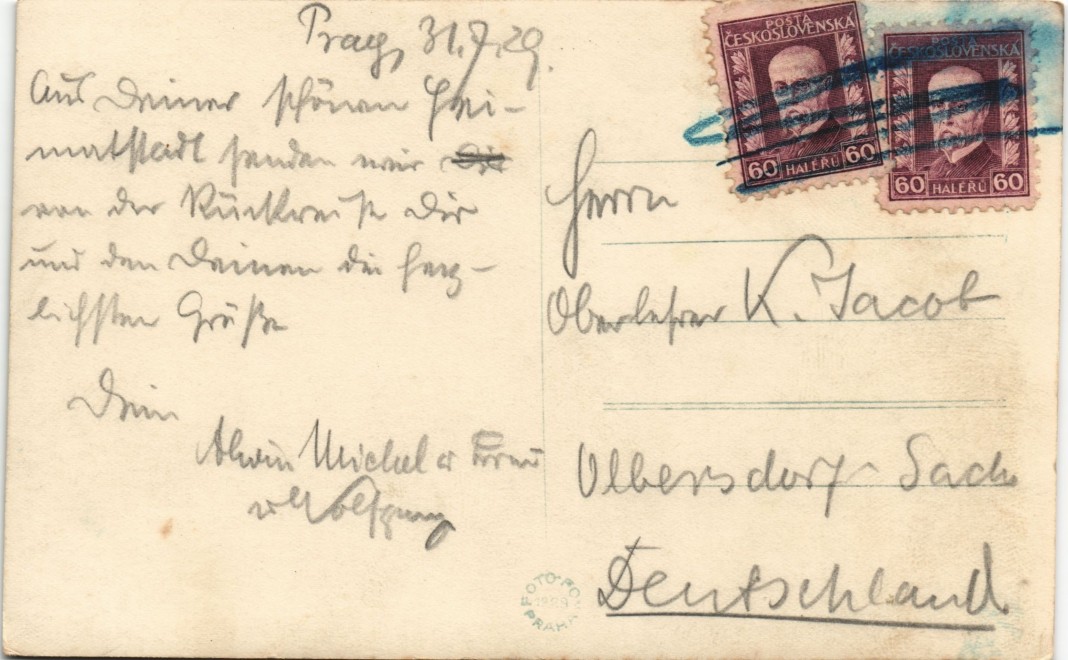 Prag, 31.7.29.
Aus Deiner schönen Hei-
matstadt senden wir Dir
von der Rückreise Dir
und den Deinen die herz-
lichsten Grüße
Dein
Alwin Michel u Frau
u Wolfgang
POSTA
ČESKOSLOVENSKÁ
60 HALÉŘŮ 60
POSTA
ČESKOSLOVENSKÁ
60 HALÉŘŮ 60
Herrn
Oberlehrer K. Jacob
Olbersdorf Sachs
Deutschland
FOTO-FON
PRAHA